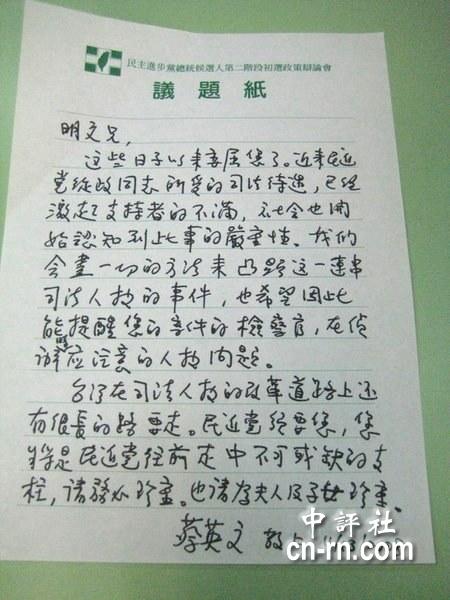 民主進步黨總統候選人第二階段初選政策辯論會
議題紙
明文兄,
这些日子以来委屈您了。近来民进
党從政同志所受的司法待遇,已经
激起支持者的不滿,社会也開
始認知到此事的嚴重性。我们
会盡一切的方法来凸顯这一連串
司法人权的事件,也希望因此
能夠提醒您的案件的檢警官,在偵
辦应注意的人权问题。
台湾在司法人权的改革道路上还
有很長的路要走。民进党須要您,您
將是民进党往前走中不可或缺的支
柱,請務必珍重。也請尊夫人及子女珍重。
蔡英文 敬上
中評社
cn-rn.com